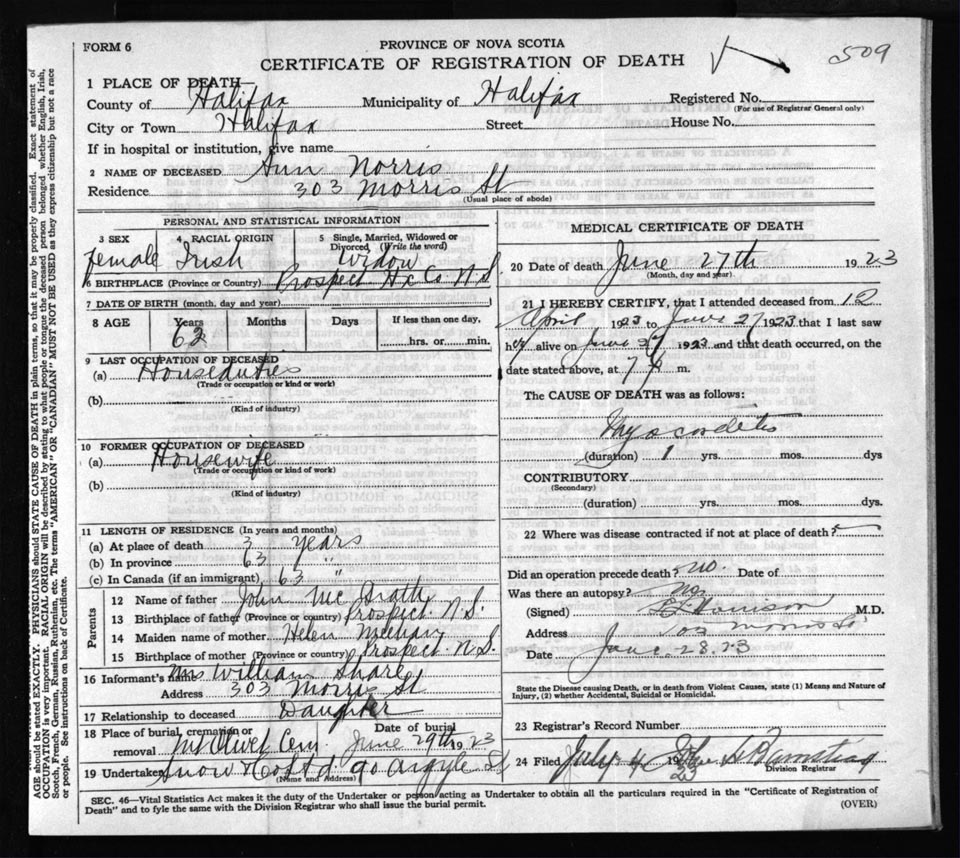 FORM 6
PROVINCE OF NOVA SCOTIA
CERTIFICATE OF REGISTRATION OF DEATH
509
1 PLACE OF DEATH—
County of Halifax Municipality of Halifax Registered No.
(For use of Registrar General only)
City or Town Halifax Street House No.
If in hospital or institution, give name
2 NAME OF DECEASED Ann Norris
Residence 303 Morris St
(Usual place of abode)
PERSONAL AND STATISTICAL INFORMATION
3 SEX 4 RACIAL ORIGIN 5 Single, Married, Widowed or Divorced (Write the word)
female Irish Widow
6 BIRTHPLACE (Province or Country) Prospect Hx Co N.S
7 DATE OF BIRTH (month, day and year)
8 AGE Years Months Days If less than one day,
63 hrs. or min.
9 LAST OCCUPATION OF DECEASED
(a) Houseduties
(Trade or occupation or kind or work)
(b)
(Kind of industry)
10 FORMER OCCUPATION OF DECEASED
(a) Housewife
(Trade or occupation or kind or work)
(b)
(Kind of industry)
11 LENGTH OF RESIDENCE (In years and months)
(a) At place of death 3 years
(b) In province 63 "
(c) In Canada (if an immigrant) 63 "
Parents
12 Name of father John Mc Grath
13 Birthplace of father (Province or country) Prospect N.S.
14 Maiden name of mother Helen Meehan
15 Birthplace of mother (Province or country) Prospect N.S.
16 Informant's name Mrs William Share
Address 303 Morris St
17 Relationship to deceased Daughter
18 Place of burial, cremation or removal Mt Olivet Cem Date of burial June 29th 1923
19 Undertaker Snow & Co Ltd 90 Argyle St
(Name and Address)
MEDICAL CERTIFICATE OF DEATH
20 Date of death June 27th 1923
(Month, day and year)
21 I HEREBY CERTIFY, that I attended deceased from 12
April 1923 to June 27 1923 that I last saw
her alive on June 27 1923 and that death occurred, on the
date stated above, at 7 m.
The CAUSE OF DEATH was as follows:
Myocarditis
(duration) 1 yrs. mos. dys
CONTRIBUTORY
(Secondary)
(duration) yrs. mos. dys.
22 Where was disease contracted if not at place of death?
Did an operation precede death? No. Date of
Was there an autopsy? No
(Signed) M.D.
Address Morris St
Date June 28, 23
State the Disease causing Death, or in death from Violent Causes, state (1) Means and Nature of Injury, (2) whether Accidental, Suicidal or Homicidal.
23 Registrar's Record Number
24 Filed July 4 1923
Division Registrar
SEC. 46—Vital Statistics Act makes it the duty of the Undertaker or person acting as Undertaker to obtain all the particulars required in the "Certificate of Registration of
Death" and to fyle the same with the Division Registrar who shall issue the burial permit.
(OVER)
AGE should be stated EXACTLY. PHYSICIANS should STATE CAUSE OF DEATH in plain terms, so that it may be properly classified. Exact statement of
OCCUPATION is very important. RACIAL ORIGIN will be described by stating to what people or tongue the deceased person belonged whether English, Irish,
Scotch, French, German, Russian, Ruthenian, etc. The terms "AMERICAN" OR "CANADIAN" MUST NOT BE USED as they express citizenship but not a race
or people. See instructions on back of Certificate.